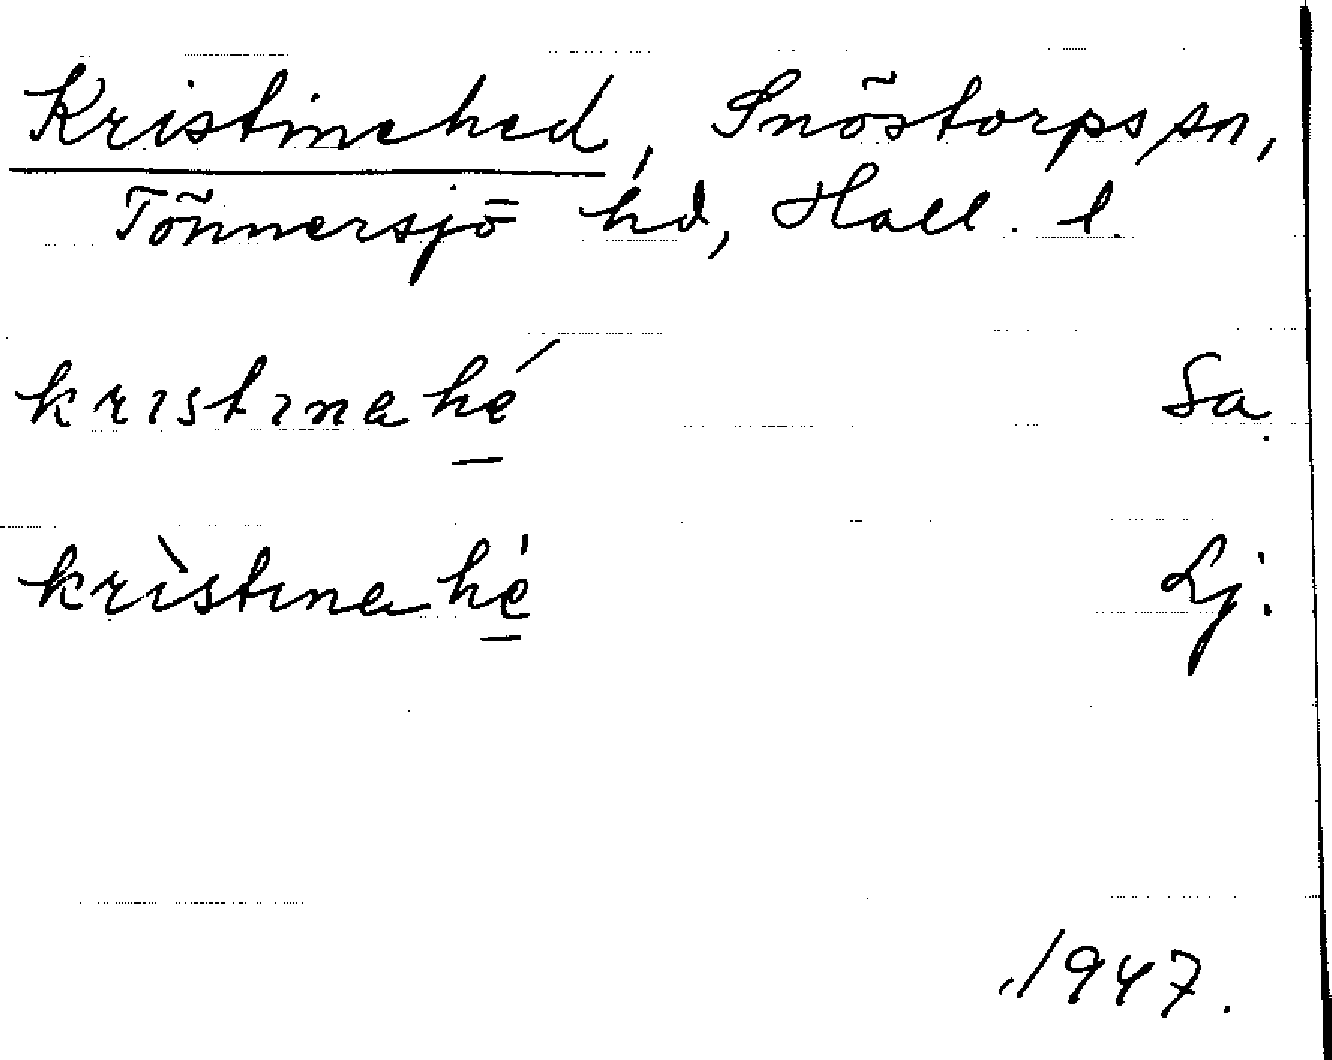 Kristinehed, Snöstorps sn,
Tönnersjö hd, Hall. l.
kristinahé Sa.
krìstinahé Lj.
1947.